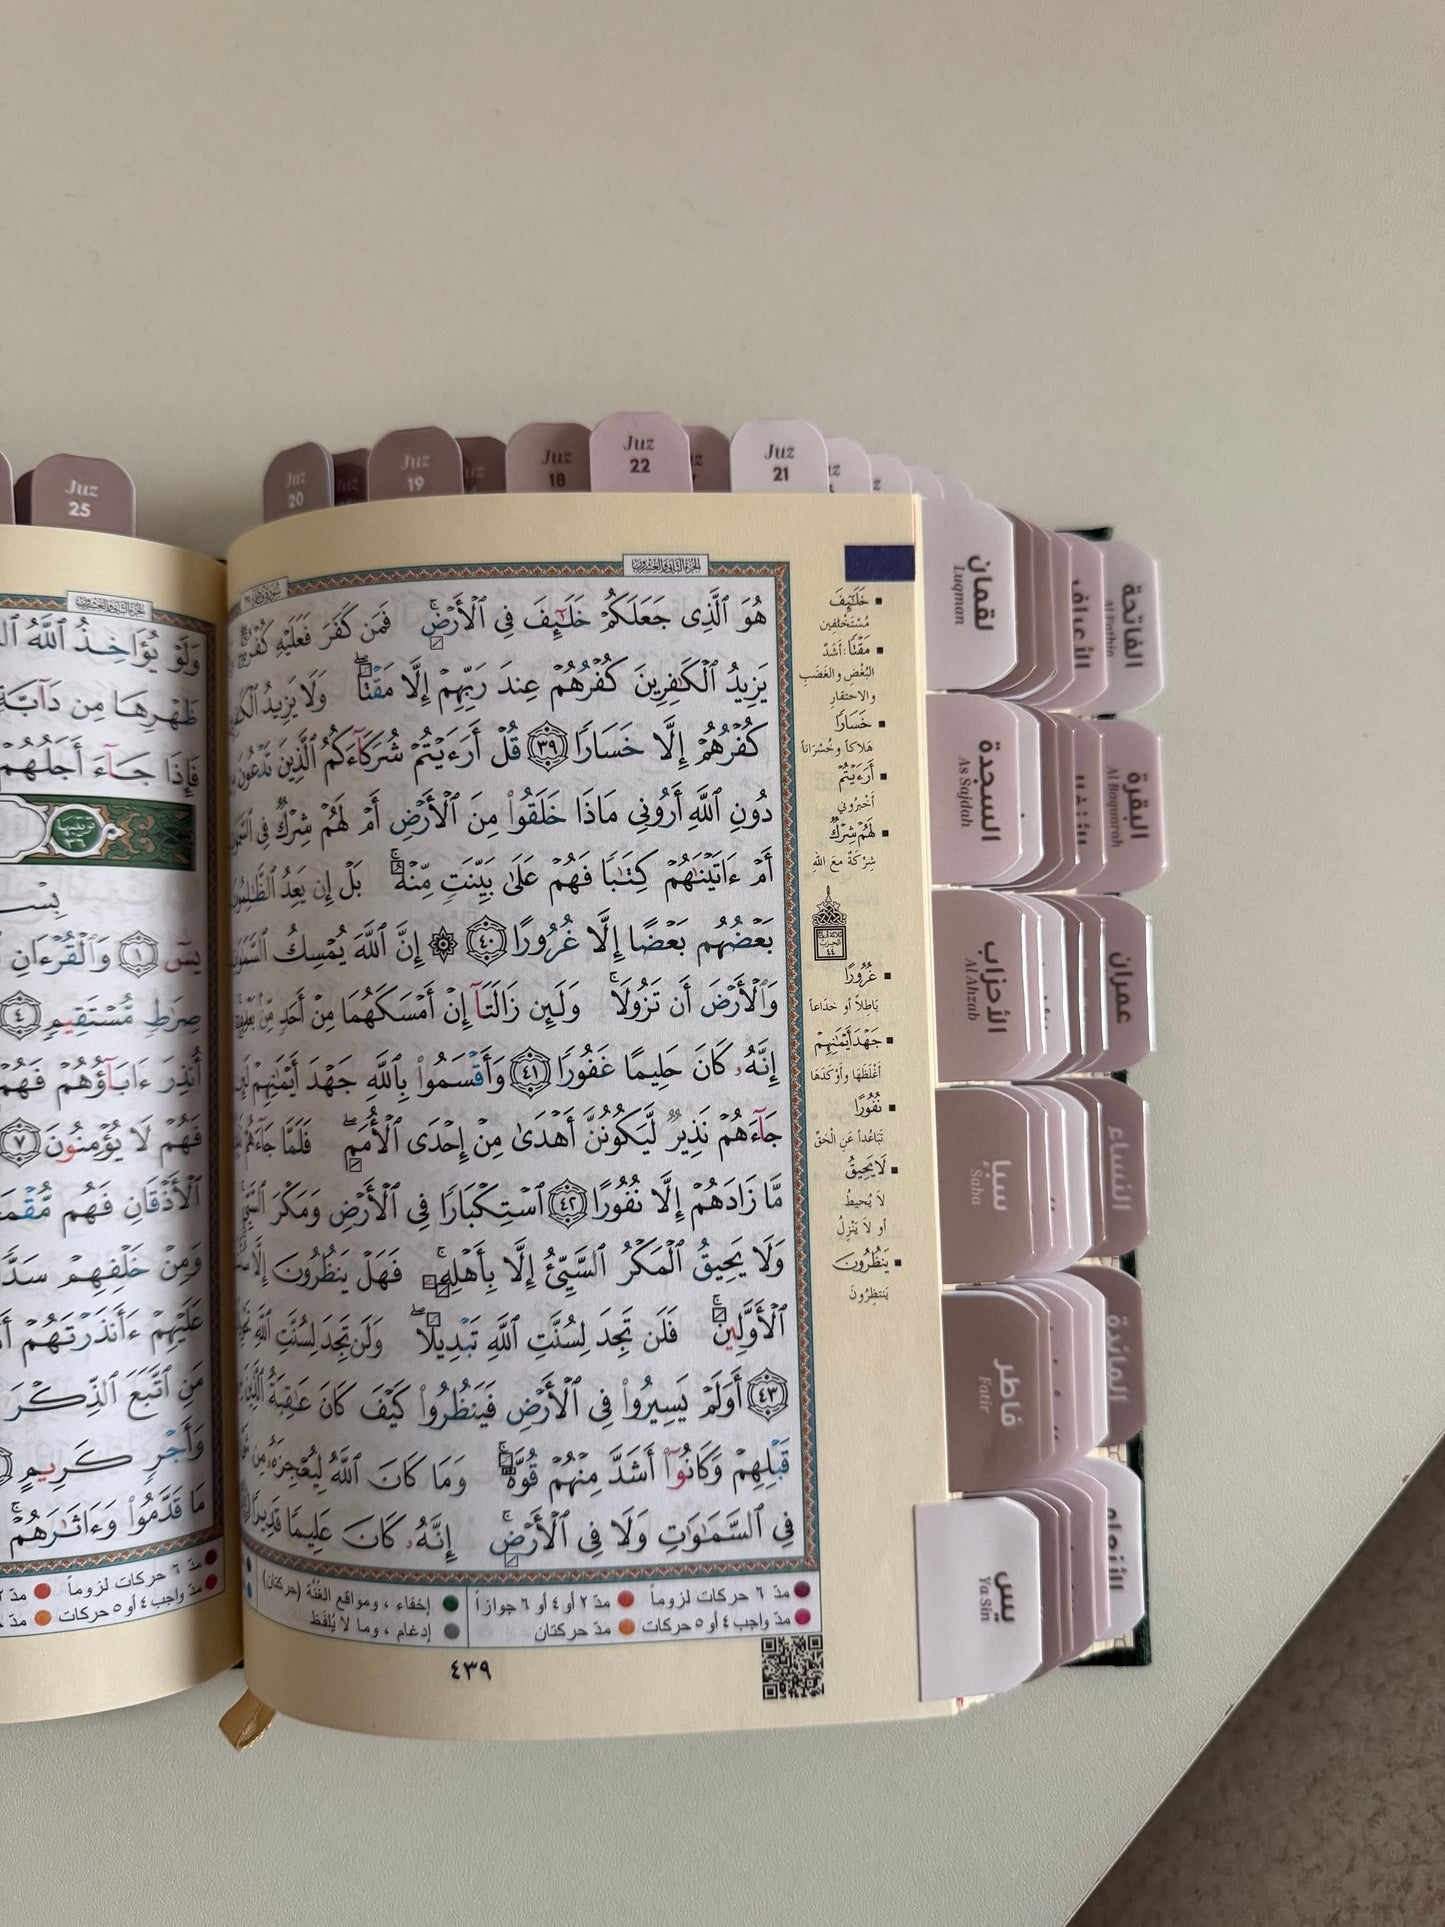 Juz
25
Juz
20
Juz
19
Juz
18
Juz
22
Juz
21
الجزء الثاني والعشرون
هُوَ ٱلَّذِى جَعَلَكُمْ خَلَـٰٓئِفَ فِى ٱلْأَرْضِ ۚ فَمَن كَفَرَ فَعَلَيْهِ كُفْرُهُۥ ۖ وَلَا
يَزِيدُ ٱلْكَـٰفِرِينَ كُفْرُهُمْ عِندَ رَبِّهِمْ إِلَّا مَقْتًا ۖ وَلَا يَزِيدُ ٱلْكَـٰفِرِينَ
كُفْرُهُمْ إِلَّا خَسَارًا ٣٩ قُلْ أَرَءَيْتُمْ شُرَكَآءَكُمُ ٱلَّذِينَ تَدْعُونَ مِن
دُونِ ٱللَّهِ أَرُونِى مَاذَا خَلَقُوا۟ مِنَ ٱلْأَرْضِ أَمْ لَهُمْ شِرْكٌ فِى ٱلسَّمَـٰوَٰتِ
أَمْ ءَاتَيْنَـٰهُمْ كِتَـٰبًا فَهُمْ عَلَىٰ بَيِّنَتٍ مِّنْهُ ۚ بَلْ إِن يَعِدُ ٱلظَّـٰلِمُونَ
بَعْضُهُم بَعْضًا إِلَّا غُرُورًا ٤٠ ۞ إِنَّ ٱللَّهَ يُمْسِكُ ٱلسَّمَـٰوَٰتِ
وَٱلْأَرْضَ أَن تَزُولَا ۚ وَلَئِن زَالَتَآ إِنْ أَمْسَكَهُمَا مِنْ أَحَدٍ مِّنۢ بَعْدِهِۦٓ ۚ
إِنَّهُۥ كَانَ حَلِيمًا غَفُورًا ٤١ وَأَقْسَمُوا۟ بِٱللَّهِ جَهْدَ أَيْمَـٰنِهِمْ لَئِن
جَآءَهُمْ نَذِيرٌ لَّيَكُونُنَّ أَهْدَىٰ مِنْ إِحْدَى ٱلْأُمَمِ ۖ فَلَمَّا جَآءَهُمْ نَذِيرٌ
مَّا زَادَهُمْ إِلَّا نُفُورًا ٤٢ ٱسْتِكْبَارًا فِى ٱلْأَرْضِ وَمَكْرَ ٱلسَّيِّئِ ۚ
وَلَا يَحِيقُ ٱلْمَكْرُ ٱلسَّيِّئُ إِلَّا بِأَهْلِهِۦ ۚ فَهَلْ يَنظُرُونَ إِلَّا سُنَّتَ
ٱلْأَوَّلِينَ ۚ فَلَن تَجِدَ لِسُنَّتِ ٱللَّهِ تَبْدِيلًا ۖ وَلَن تَجِدَ لِسُنَّتِ ٱللَّهِ تَحْوِيلًا
٤٣ أَوَلَمْ يَسِيرُوا۟ فِى ٱلْأَرْضِ فَيَنظُرُوا۟ كَيْفَ كَانَ عَـٰقِبَةُ ٱلَّذِينَ مِن
قَبْلِهِمْ وَكَانُوٓا۟ أَشَدَّ مِنْهُمْ قُوَّةً ۚ وَمَا كَانَ ٱللَّهُ لِيُعْجِزَهُۥ مِن شَىْءٍ
فِى ٱلسَّمَـٰوَٰتِ وَلَا فِى ٱلْأَرْضِ ۚ إِنَّهُۥ كَانَ عَلِيمًا قَدِيرًا
مدّ ٦ حركات لزوماً مدّ ٢ أو ٤ أو ٦ جوازاً إخفاء ، ومواقع الغُنَّة (حركتان)
مدّ واجب ٤ أو ٥ حركات مدّ حركتان إدغام ، وما لا يُلفَظ
٤٣٩
خَلَـٰٓئِفَ
مُسْتَخْلَفِين
مَقْتًا : أشدّ
البُغْضِ والغَضَبِ
والاحتقارِ
خَسَارًا
هَلاكاً وخُسْرَاناً
أَرَءَيْتُمْ
أخْبِرُوني
لَهُمْ شِرْكٌ
شِرْكَةٌ مَعَ اللهِ
غُرُورًا
بَاطِلاً أو خِدَاعاً
جَهْدَ أَيْمَـٰنِهِمْ
أغْلَظَهَا وأوْكَدَهَا
نُفُورًا
تَبَاعُداً عَنِ الْحَقِّ
لَا يَحِيقُ
لاَ يُحيطُ
أو لاَ يَنْزِلُ
يَنظُرُونَ
يَنتظِرُونَ
الجزء الثاني والعشرون
وَلَوْ يُؤَاخِذُ ٱللَّهُ
ظَهْرِهَا مِن دَآبَّةٍ
فَإِذَا جَآءَ أَجَلُهُمْ
ترتيبها
٣٦
يسٓ ١ وَٱلْقُرْءَانِ
صِرَٰطٍ مُّسْتَقِيمٍ ٤
أُنذِرَ ءَابَآؤُهُمْ فَهُمْ
فَهُمْ لَا يُؤْمِنُونَ ٧
ٱلْأَذْقَانِ فَهُم
وَمِنْ خَلْفِهِمْ سَدًّا
عَلَيْهِمْ ءَأَنذَرْتَهُمْ
مَنِ ٱتَّبَعَ ٱلذِّكْرَ
وَأَجْرٍ كَرِيمٍ
مَا قَدَّمُوا۟ وَءَاثَـٰرَهُمْ ۚ
مدّ ٦ حركات لزوماً
مدّ واجب ٤ أو ٥ حركات
لقمان
Luqman
السجدة
As Sajdah
الأحزاب
Al Ahzab
سبإ
Saba
فاطر
Fatir
يس
Ya Sin
الفاتحة
Al Fatihin
البقرة
Al Baqarah
عمران
النساء
المائدة
الأنعام
الأعراف